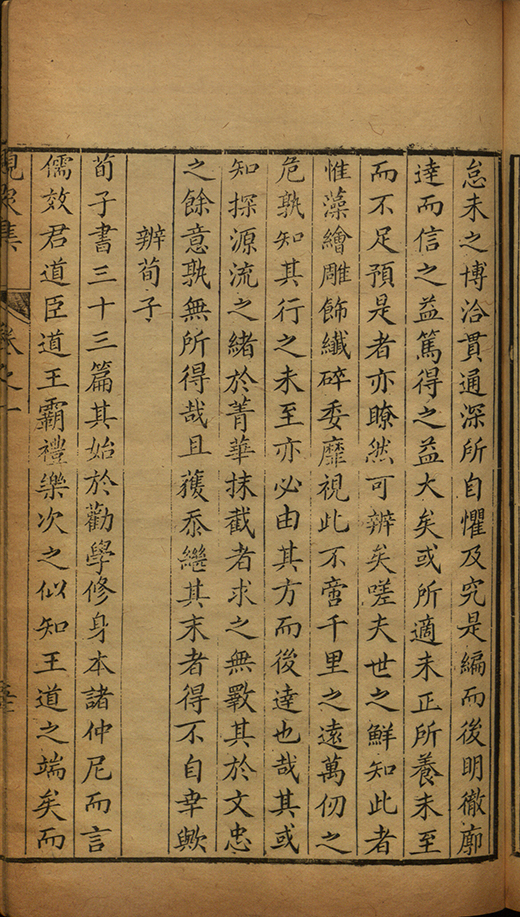 怠未之博洽貫通深所自懼及究是編而後明徹廓
達而信之益篤得之益大矣或所適未正所養未至
而不足預是者亦瞭然可辨矣嗟夫世之鮮知此者
惟藻繪雕飾纖碎委靡視此不啻千里之遠萬仞之
危孰知其行之未至亦必由其方而後達也哉其或
知探源流之緒於菁華抹截者求之無斁其於文忠
之餘意孰無所得哉且獲忝繼其末者得不自幸歟
辨荀子
荀子書三十三篇其始於勸學修身本諸仲尼而言
儒效君道臣道王霸禮樂次之似知王道之端矣而
集
卷之一